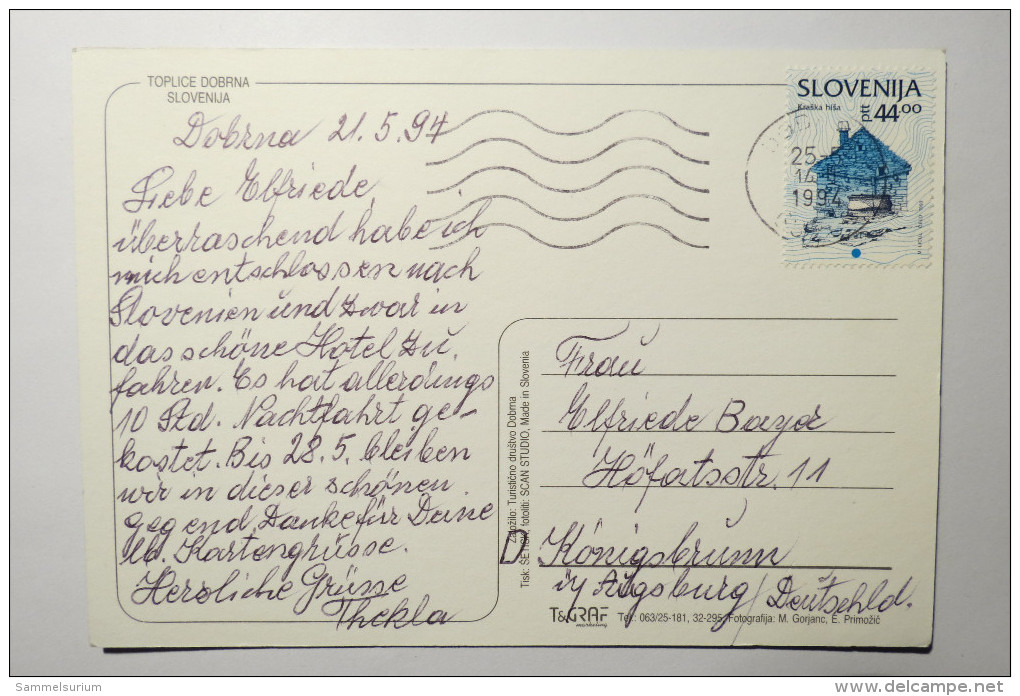 TOPLICE DOBRNA
SLOVENIJA
Dobrna 21.5.94
Liebe Elfriede,
überraschend habe ich
mich entschlossen nach
Slovenien und zwar in
das schöne Hotel zu
fahren. Es hat allerdings
10 Std. Nachtfahrt ge-
kostet. Bis 28.5. bleiben
wir in dieser schönen
Gegend. Danke für Deine
lb. Kartengrüsse.
Herzliche Grüsse
Thekla
SLOVENIJA
Kraška hiša
ptt 44.00
25-5
1994
Založilo: Turistično društvo Dobrna
Tisk: fotoliti: SCAN STUDIO, Made in Slovenia
Frau
Elfriede Bayer
Höfatsstr. 11
D. Königsbrunn
Augsburg/Deutschld.
T&GRAF
marketing
Tel.: 063/25-181, 32-295, Fotografija: M. Gorjanc, E. Primožič
Sammelsurium
www.delcampe.net